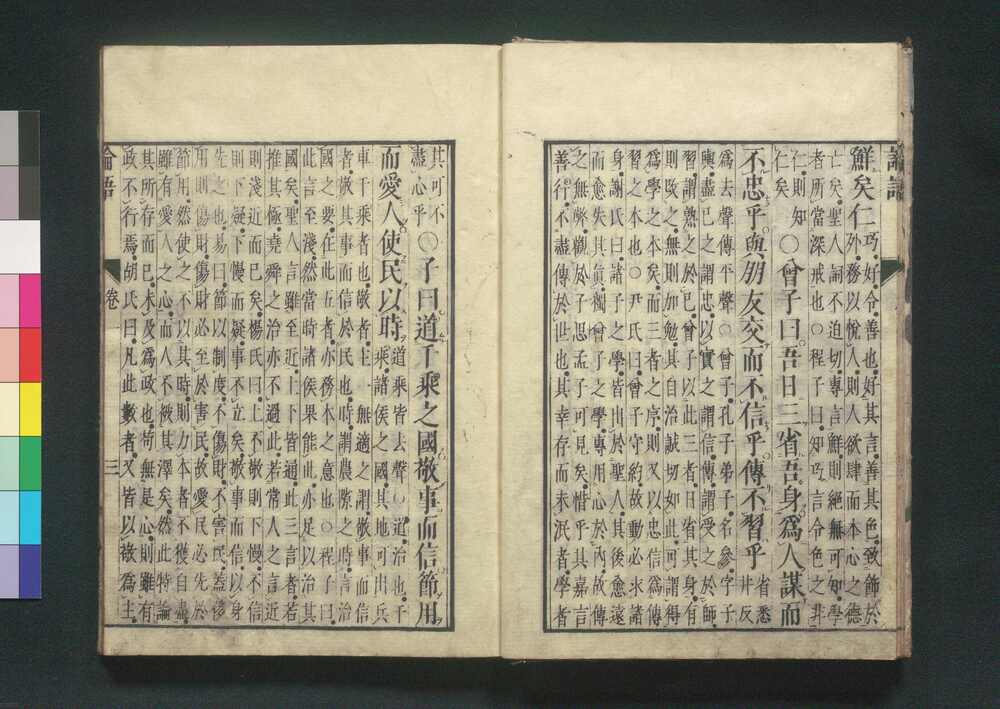 論語
鮮矣仁
巧好令善也好其言善其色致飾於
外務以悅人則人欲肆而本心之德
亡矣聖人詞不迫切專言鮮則絕無可知學
者所當深戒也○程子曰知巧言令色之非
仁則知
仁矣
○曾子曰吾日三省吾身爲人謀而
不忠乎與朋友交而不信乎傳不習乎
省悉
井反
爲去聲傳平聲○曾子孔子弟子名參字子
輿盡己之謂忠以實之謂信傳謂受之於師
習謂熟之於己曾子以此三者日省其身有
則改之無則加勉其自治誠切如此可謂得
爲學之本矣而三者之序則又以忠信爲傳
習之本也○尹氏曰曾子守約故動必求諸
身謝氏曰諸子之學皆出於聖人其後愈遠
而愈失其眞獨曾子之學專用心於內故傳
之無弊觀於子思孟子可見矣惜乎其嘉言
善行不盡傳於世也其幸存而未泯者學者
其可不
盡心乎
○子曰道千乘之國敬事而信節用
而愛人使民以時
道乘皆去聲○道治也千
乘諸侯之國其地可出兵
車千乘者也敬者主一無適之謂敬事而信
者敬其事而信於民也時謂農隙之時言治
國之要在此五者亦務本之意也○程子曰
此言至淺然當時諸侯果能此亦足以治其
國矣聖人言雖至近上下皆通此三言者若
推其極堯舜之治亦不過此若常人之言近
則淺近而已矣楊氏曰上不敬則下慢不信
則下疑下慢而疑事不立矣敬事而信以身
先之也易曰節以制度不傷財不害民蓋侈
用則傷財傷財必至於害民故愛民必先於
節用然使之不以其時則力本者不獲自盡
雖有愛人之心而人不被其澤矣然此特論
其所存而已未及爲政也苟無是心則雖有
政不行焉胡氏曰凡此數者又皆以敬爲主
論語 卷一 三